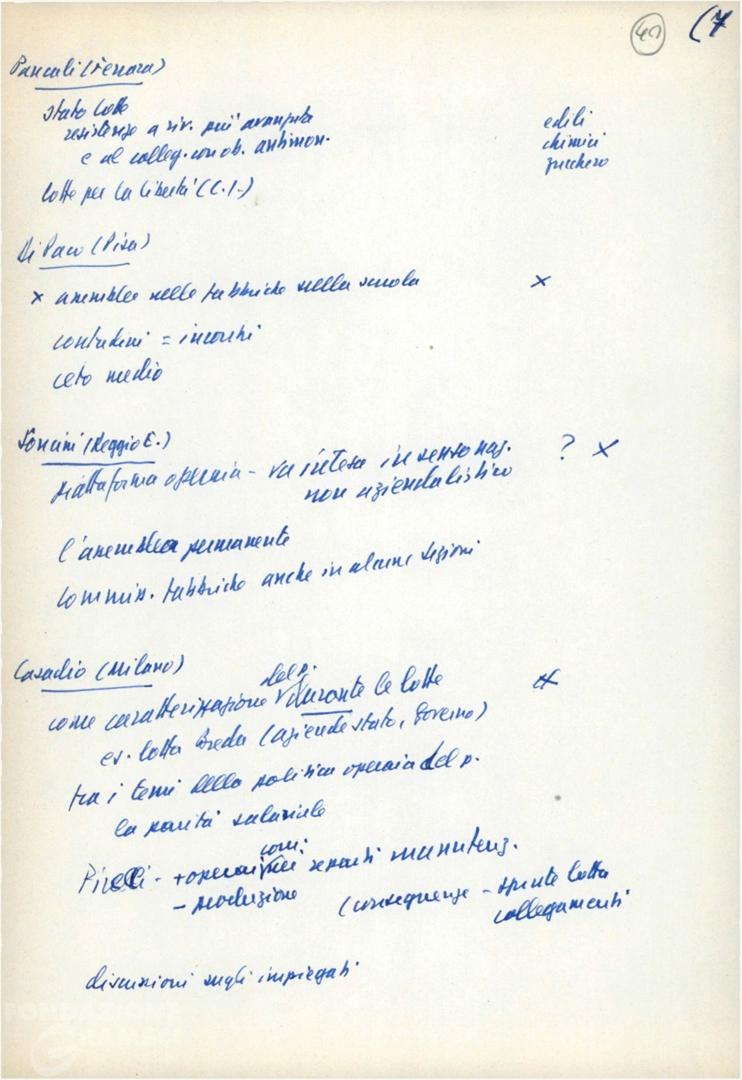 40 (7
Pascali (Ferrara)
stato lotte
resistenze a riv. più avanzate edili
e al colleg. con ob. antimon. chimici
lotte per la libertà (C.I.) zucchero
Di Paco (Pisa)
x assemblee nelle fabbriche sulla scuola x
contadini = incontri
ceto medio
Soncini (Reggio E.)
piattaforma operaia - va intesa in senso naz. ? x
non aziendalistico
l'assemblea permanente
commiss. fabbriche anche in alcune sezioni
Casadio (Milano)
del p.
come caratterizzazione durante le lotte x
es. lotta Breda (aziende stato, governo)
tra i temi della politica operaia del p.
la parità salariale
com:
Pirelli - + operai nei reparti manutenz.
- produzione (conseguenze - spinte lotta
collegamenti
discussioni sugli impiegati
FONDAZIONE
GRAMSCI